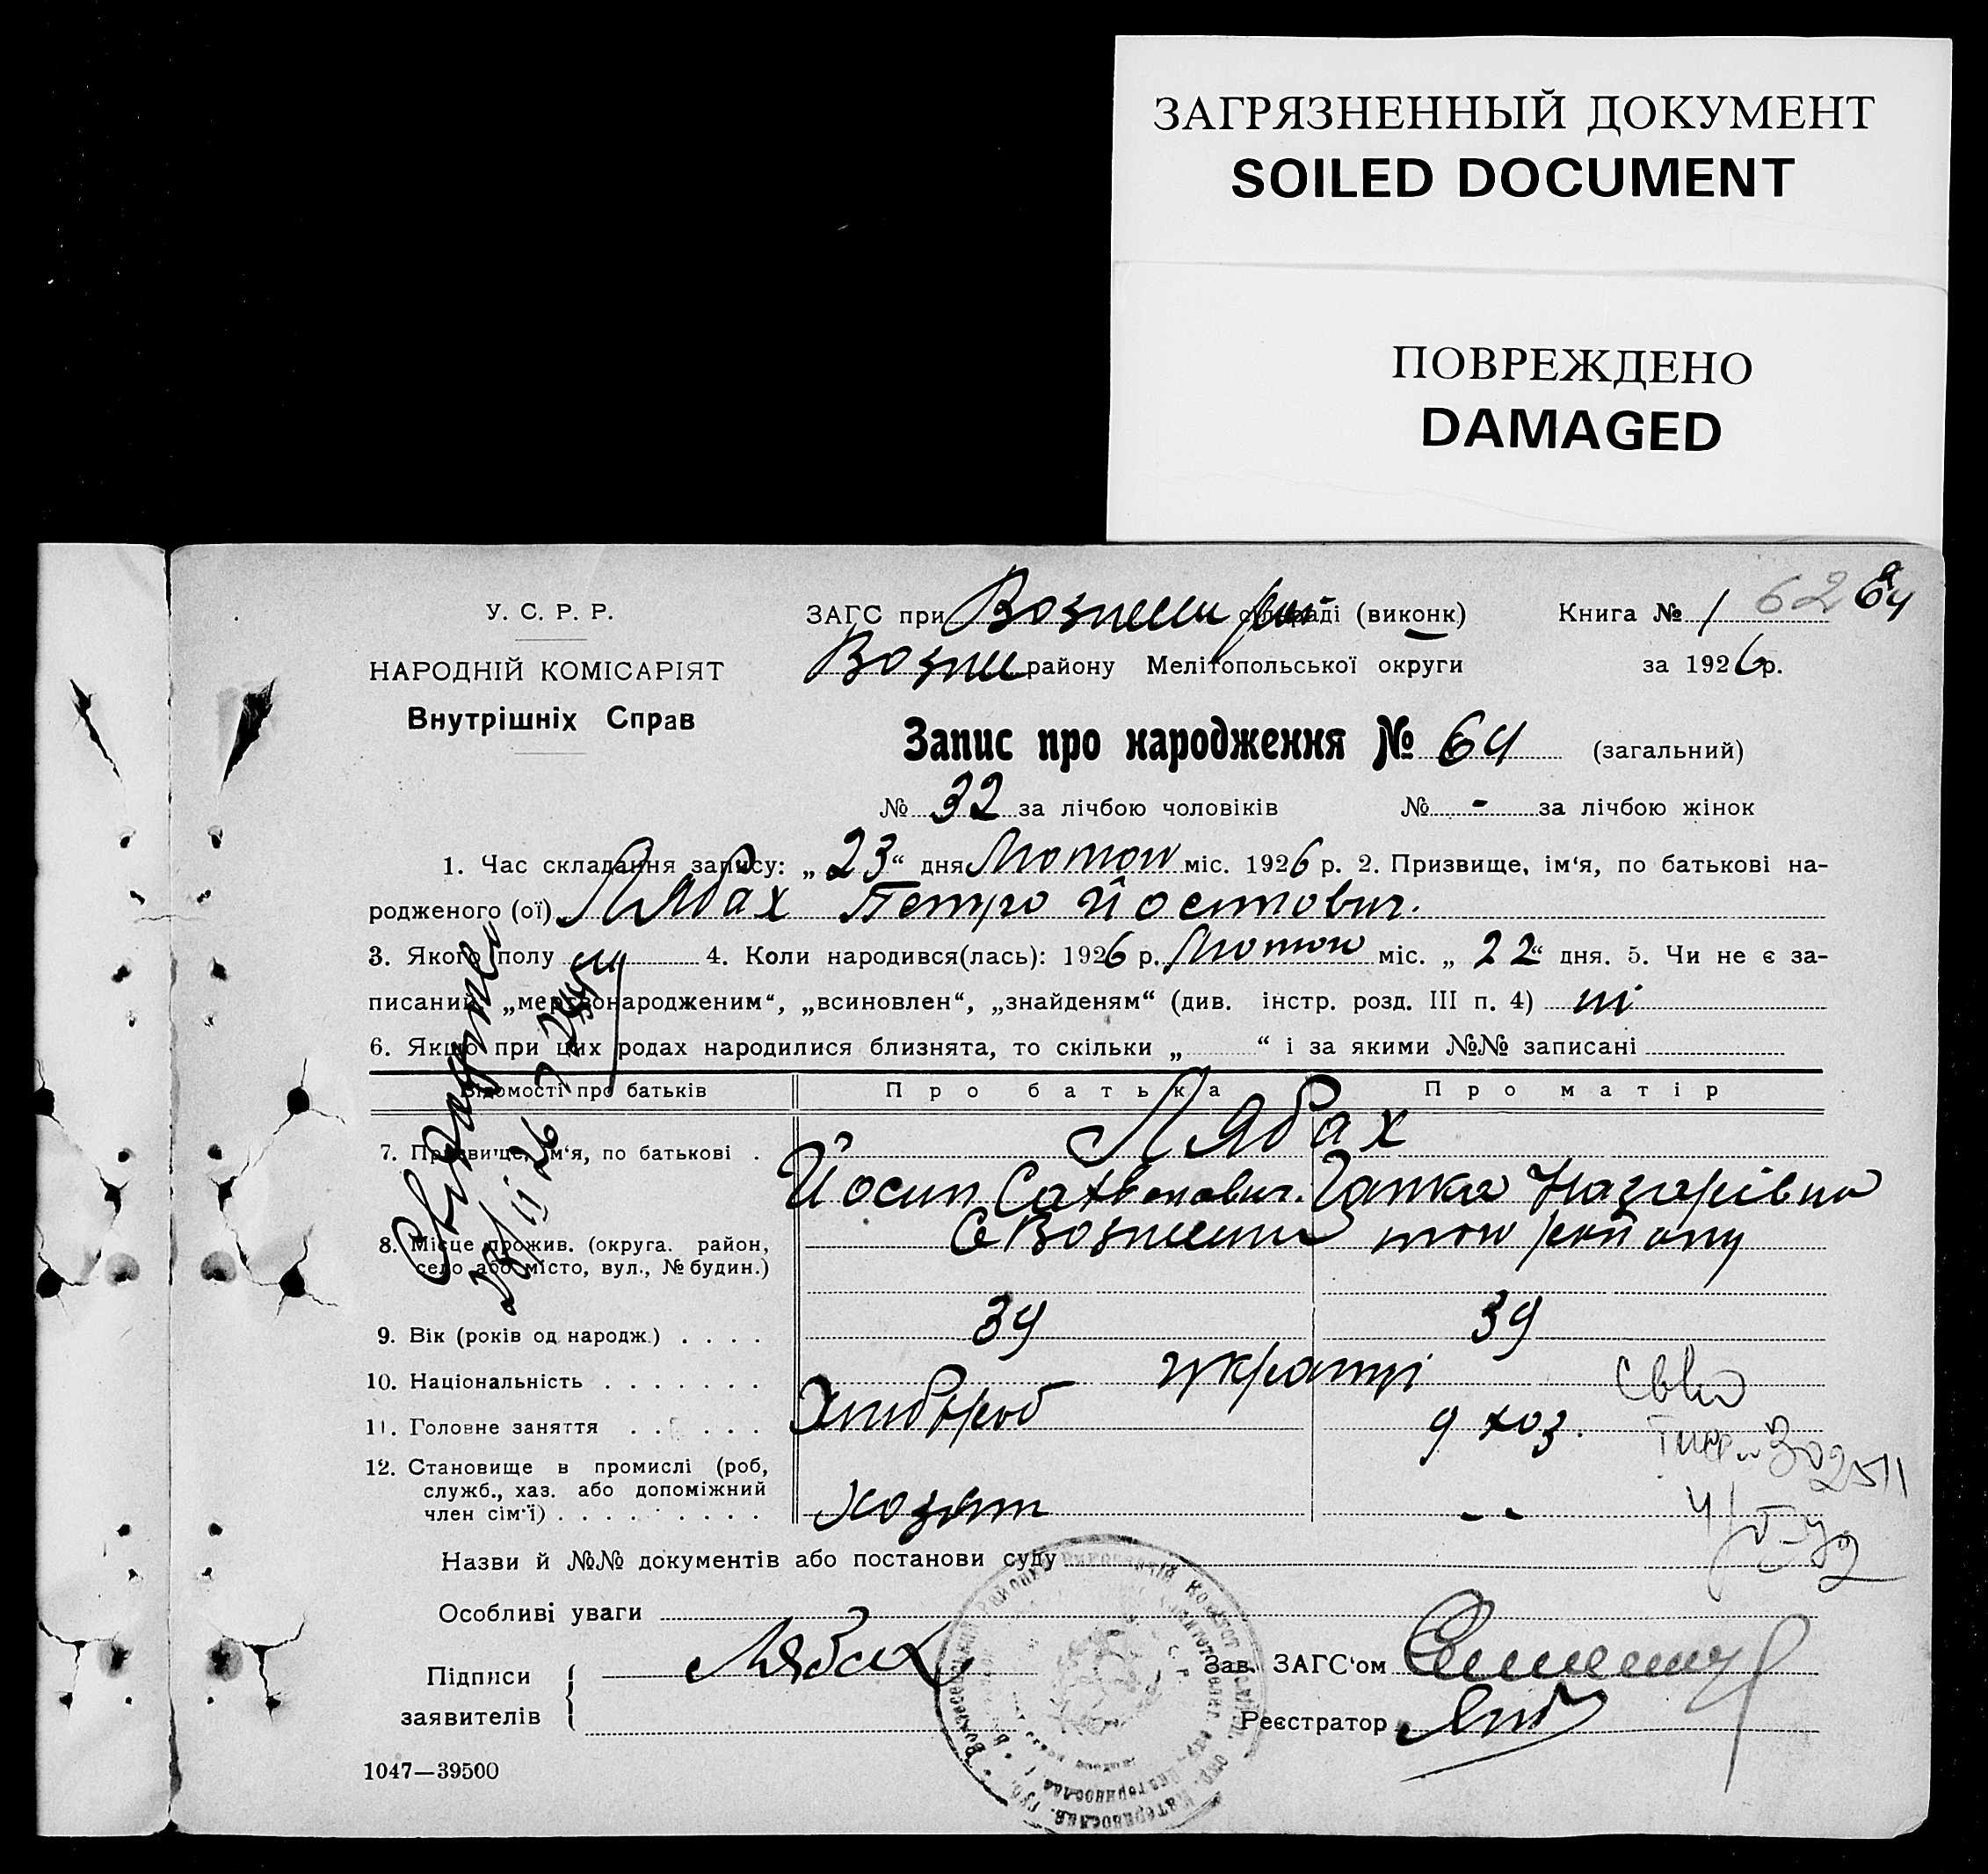 ЗАГРЯЗНЕННЫЙ ДОКУМЕНТ
SOILED DOCUMENT
ПОВРЕЖДЕНО
DAMAGED
У. С. Р. Р.
НАРОДНІЙ КОМІСАРІЯТ
Внутрішніх Справ
ЗАГС при сільраді (виконк) Книга № 1 62 64
району Мелітопольської округи за 1926 р.
Запис про народження № 64 (загальний)
№ 32 за лічбою чоловіків № - за лічбою жінок
1. Час складання запису: „23“ дня Лютого міс. 1926 р. 2. Призвище, ім‘я, по батькові на-
родженого (ої) Лябах Петро Йоситович.
3. Якого полу ч 4. Коли народився(лась): 1926 р. Лютого міс. „22“ дня. 5. Чи не є за-
писаний „мертвонародженим“, „всиновлен“, „знайденям“ (див. інстр. розд. III п. 4) ні
6. Якщо при цих родах народилися близнята, то скільки „ “ і за якими №№ записані
Відомості про батьків Про батька Про матір
Лябах
7. Призвище, ім‘я, по батькові .
Йосип Гапка Назарівна
8. Місце прожив. (округа. район,
село або місто, вул., № будин.)
9. Вік (років од народж.) . . . . 39 39
10. Національність . . . . . . . українці
11. Головне заняття . . . . . . Хлібороб д хоз.
12. Становище в промислі (роб,
служб., хаз. або допоміжний
член сім‘ї) . . . . . . . . . хозяїн --
Назви й №№ документів або постанови суду
Особливі уваги
Підписи
заявителів
Лябах
Зав. ЗАГС‘ом
Реєстратор
1047—39500